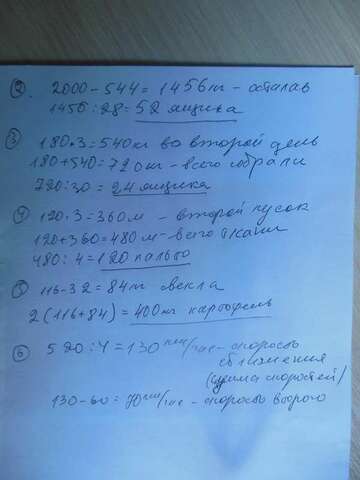 2. 2000-544=1456кг - осталось
1456:28=52 ящика
3 180·3=540кг во второй день
180+540=720кг - всего собрали
720:30=24 ящика
4 120·3=360м - второй кусок
120+360=480м - всего ткани
480:4=120 пальто
5 116-32=84кг свекла
2(116+84)=400кг картофель
6 520:4=130км/час - скорость
сближения
(сумма скоростей)
130-60=70км/час - скорость второго